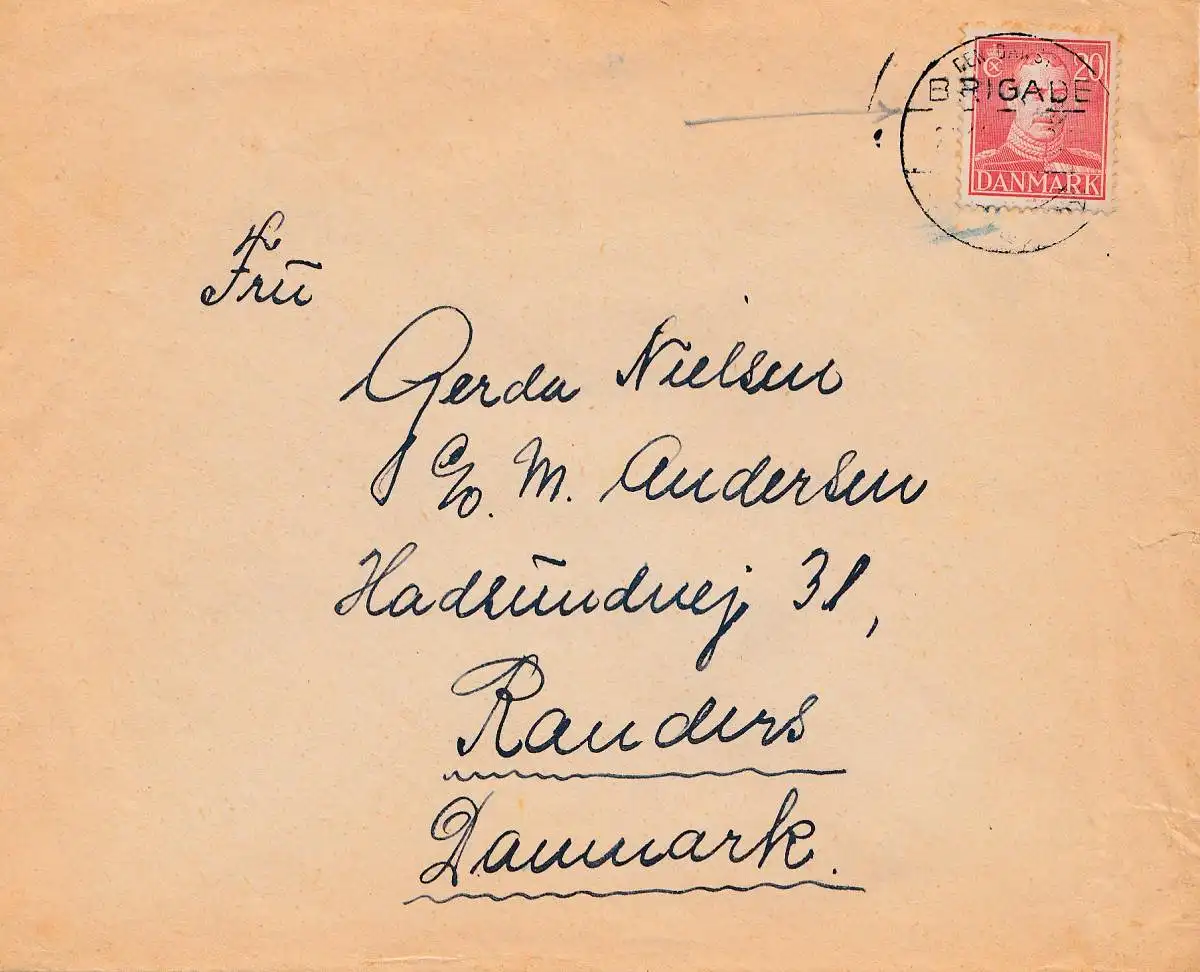 DEN DANSKE
BRIGADE
20
DANMARK
Fru
Gerda Nielsen
c/o. M. Andersen
Hadsundvej 31,
Randers
Danmark.